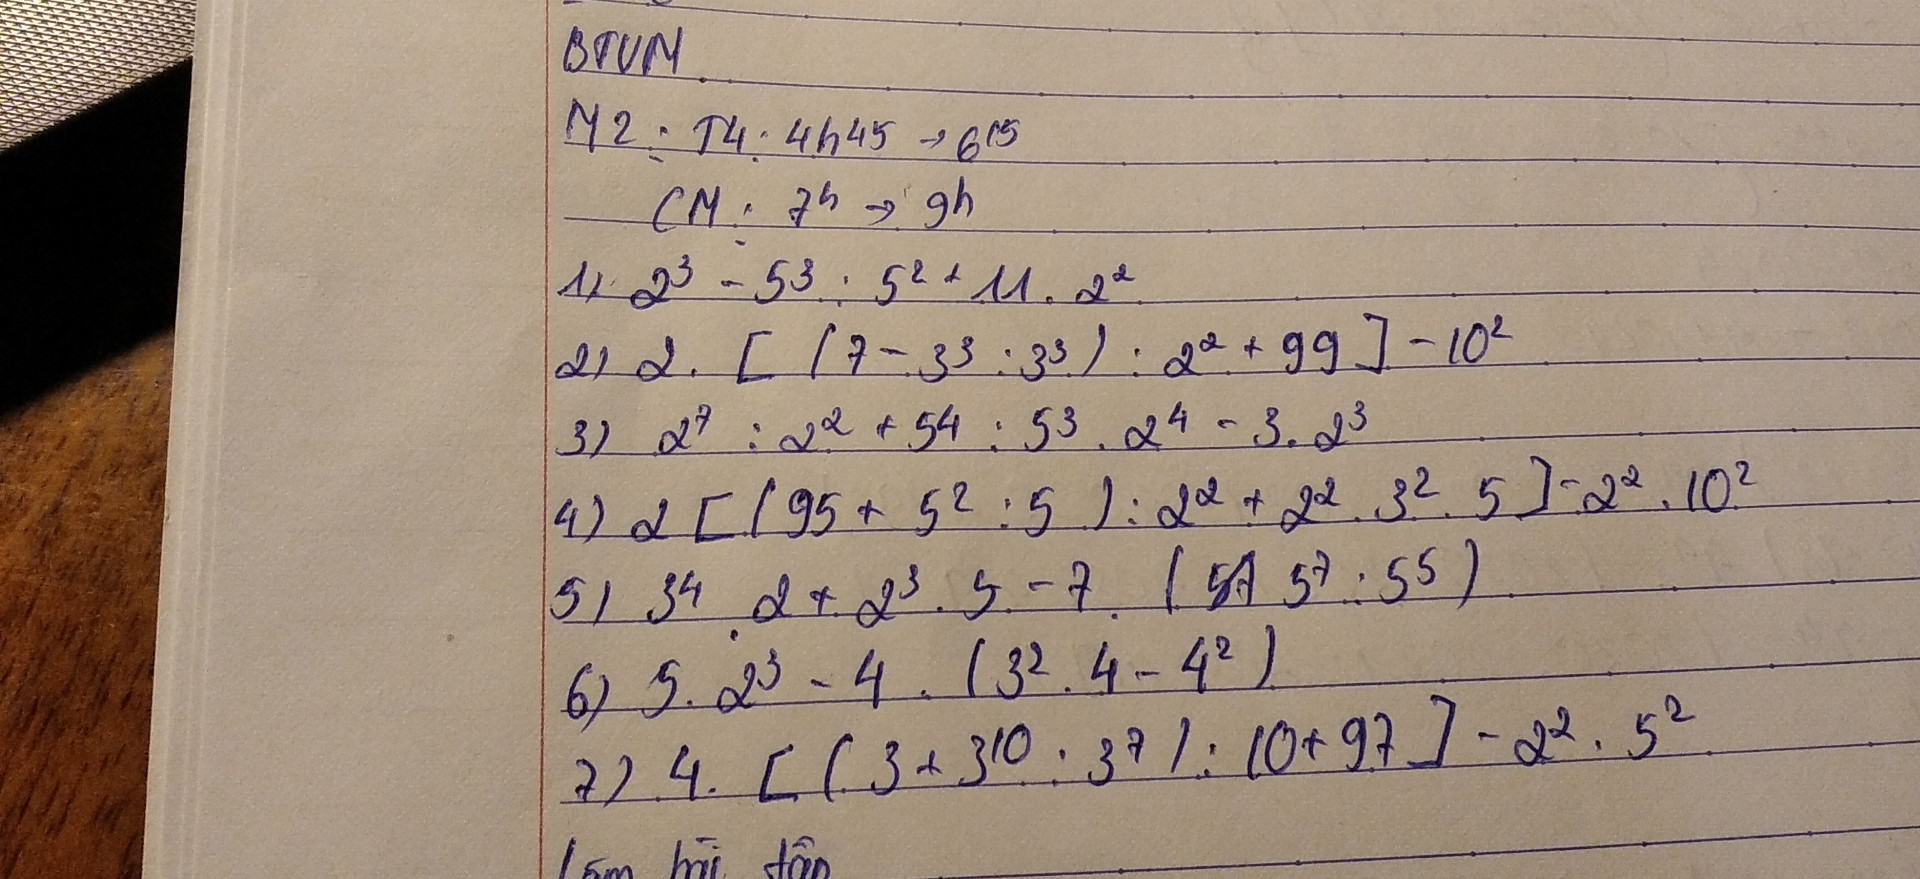 BTVN
M2 : T4 : 4h45 → 6¹⁵
CM : 7h → 9h
1) 2³ - 5³ : 5² + 11 . 2²
2) 2 . [ ( 7 - 3³ : 3³ ) : 2² + 99 ] - 10²
3) 2⁷ : 2² + 5⁴ : 5³ . 2⁴ - 3 . 2³
4) 2 [ ( 95 + 5² : 5 ) : 2² + 2² . 3² . 5 ] - 2² . 10²
5) 3⁴ . 2 + 2³ . 5 - 7 . ( 5⁷ : 5⁵ )
6) 5 . 2³ - 4 . ( 3² . 4 - 4² )
7) 4 . [ ( 3 + 3¹⁰ : 3⁷ ) : 10 + 97 ] - 2² . 5²
Làm bài tập